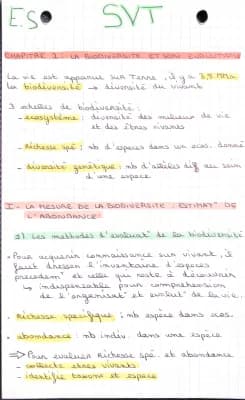 ES SVT
CHAPITRE 1 : LA BIODIVERSITÉ ET SON ÉVOLUTION
La vie est apparue sur Terre, il y a 3,8 MMa
La biodiversité → diversité du vivant
3 échelles de biodiversité :
- ecosystème : diversité des milieux de vie
et des êtres vivants
- richesse spé : nb d'espèces dans un ecos. donné
- diversité génétique : nb d'allèles diff au sein
d'une espèce
I - LA MESURE DE LA BIODIVERSITÉ : ESTIMAT° DE
L'ABONDANCE
1) Les méthodes d'évaluat° de la biodiversité
• Pour acquérir connaissance sur vivant, il
faut dresser l'inventaire d'espèces
et celle qui reste à découvrir
↳ indispensable pour compréhension
de l'organisat° et évolut° de la vie.
• Richesse spécifique : nb espèce dans ecos.
• abondance : nb indiv. dans une espèce
⇒ Pour évaluer richesse spé. et abondance
- collecte êtres vivants
- identifie taxons et espèce